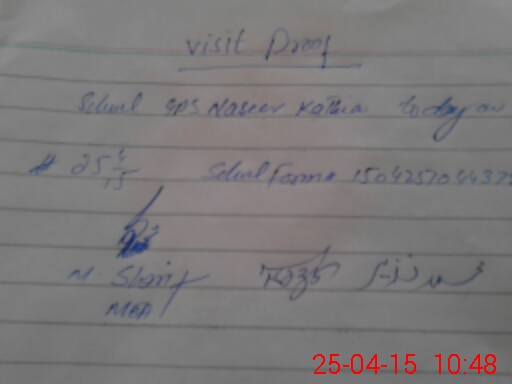 visit Proof
School GPS Naseer Kathia today on
# 25 4/15 School Forma 150425704437
M. Sharif
MEA
25-04-15 10:48